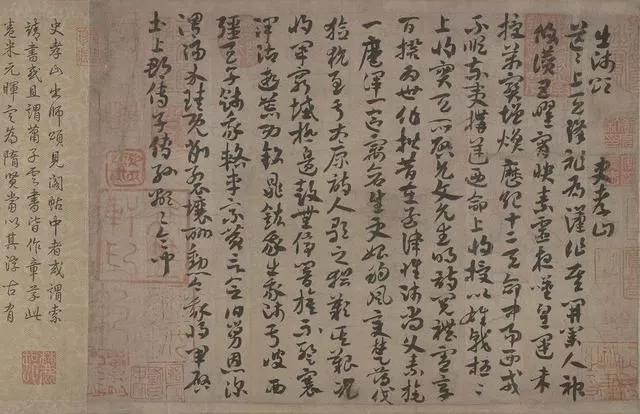 出師頌
史孝山
茫茫上天降祚為漢作基開業人神
攸讚五曜霄映素靈夜嘆皇運未
授萬寶增煥歷紀十二天命中易西戎
不順東夷構逆乃命上將授以雄戟桓桓
上將實天所啟允文允武明詩閱禮憲章
百揆為世作楷昔在孟津惟師尚父素旄
一麾渾一區宇蒼生更始朔風變楚薄伐
獫狁至于太原詩人歌之猶嘆其艱況
我將軍窮城極邊鼓無停響旗不蹔褰
澤沾遐荒功銘鼎鉉我出我師于彼西
疆天子餞我輅車乘黃言念伯舅恩深
渭陽介珪既削裂壤酬勳今我將軍啟
土上郡傳子傳孫顯顯令問
史孝山出師頌見閣帖中者或謂索
靖書或且謂蕭子雲書皆作章草此
卷米元暉定為隋賢當以其淳古有